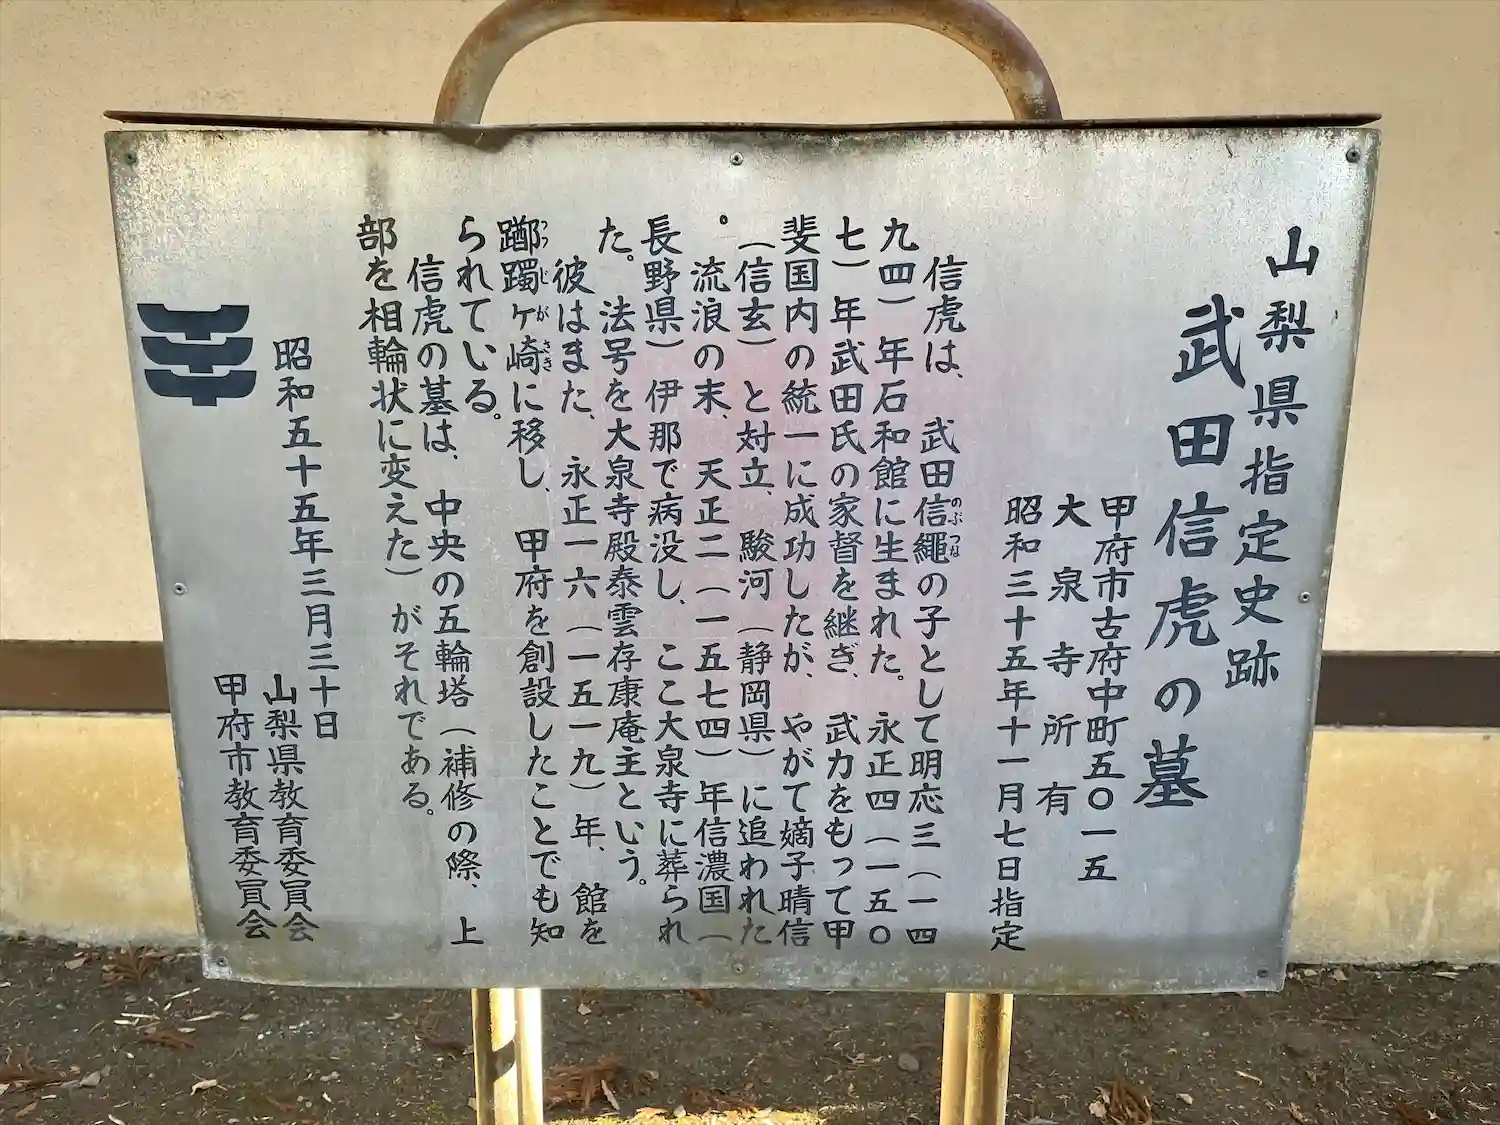 山梨県指定史跡
武田信虎の墓
甲府市古府中町五〇一五
大泉寺所有
昭和三十五年十一月七日指定
信虎は、武田信繩の子として明応三（一四
九四）年石和館に生まれた。永正四（一五〇
七）年武田氏の家督を継ぎ、武力をもって甲
斐国内の統一に成功したが、やがて嫡子晴信
（信玄）と対立、駿河（静岡県）に追われた
。流浪の末、天正二（一五七四）年信濃国（
長野県）伊那で病没し、ここ大泉寺に葬られ
た。法号を大泉寺殿泰雲存康庵主という。
彼はまた、永正一六（一五一九）年、館を
躑躅ヶ崎に移し、甲府を創設したことでも知
られている。
信虎の墓は、中央の五輪塔（補修の際、上
部を相輪状に変えた）がそれである。
昭和五十五年三月三十日
山梨県教育委員会
甲府市教育委員会